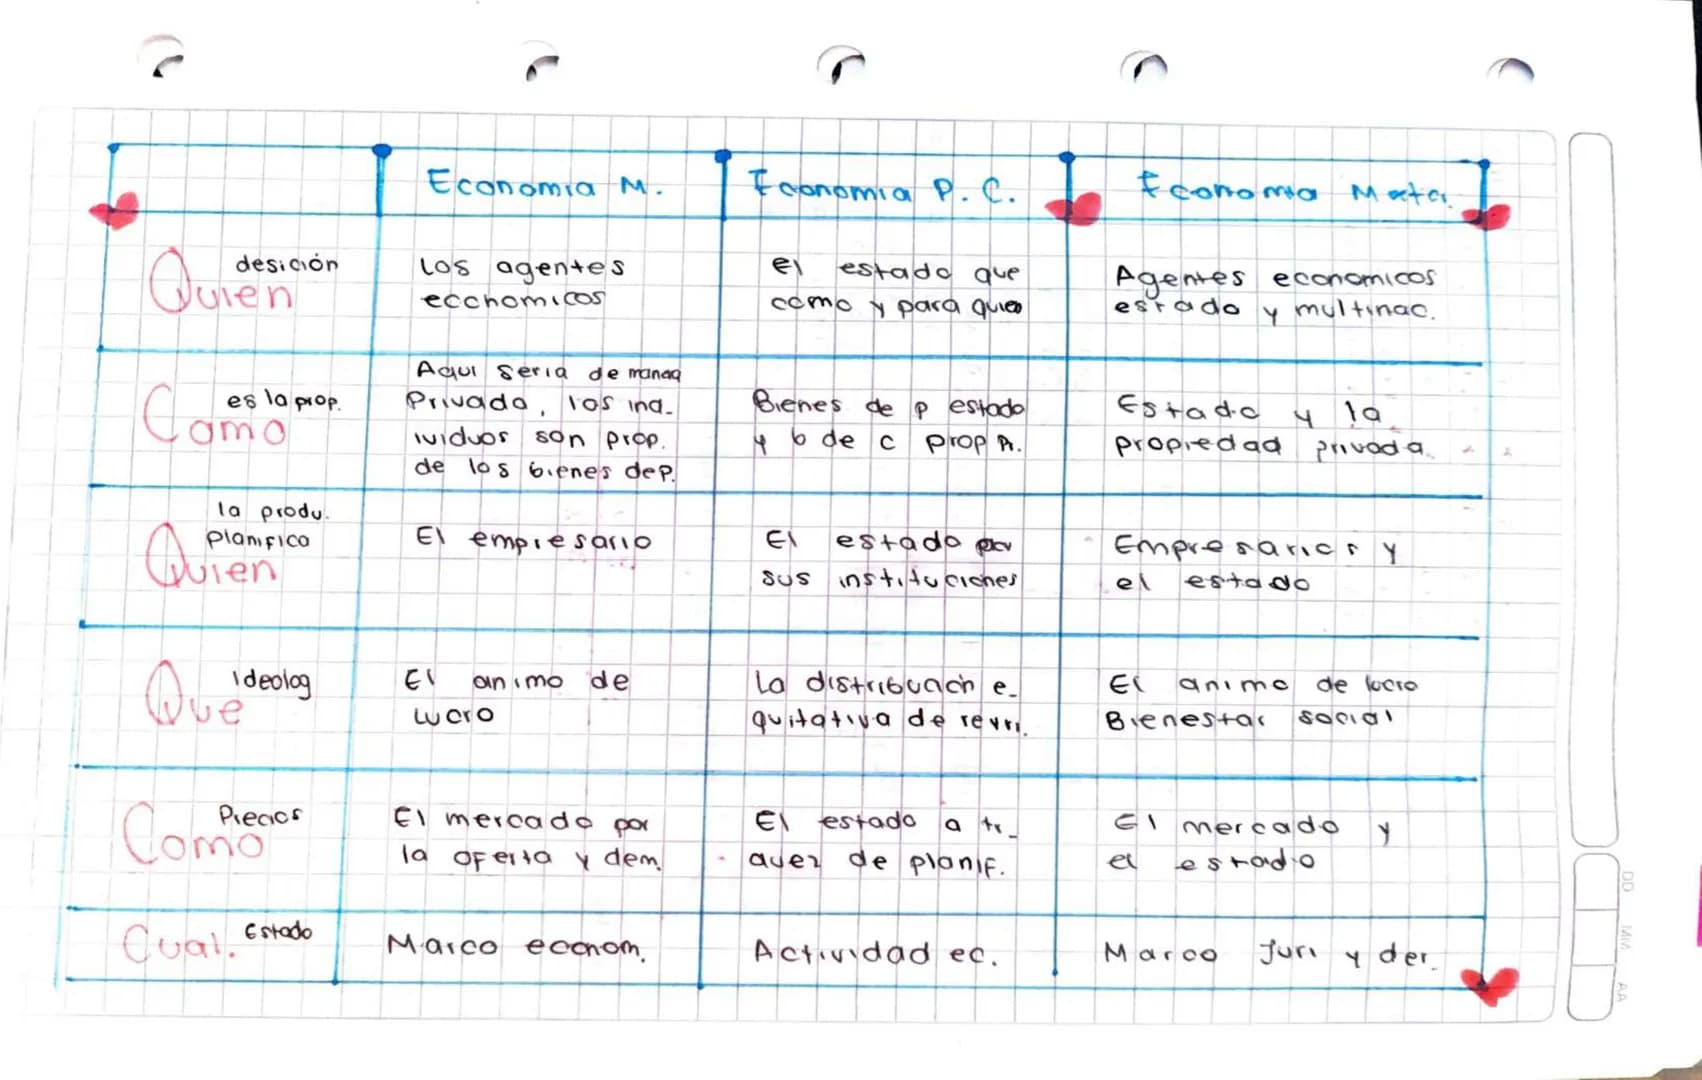 Economia M.
Economia P. C.
Economia Mxta.
desición
Quien
Los agentes
economicos
el estado que
como y para quien
Agentes economicos
estado y multinac.
es la prop.
Como
Aqui seria de manaa
Privada, los ind-
ividuos son prop.
de los bienes de p.
Bienes de p estado
y b de c prop P.
Estado y la
propiedad privada
la produ.
planifica
Quien
El empresario
El estado por
sus instituciones
Empresarios y
el estado
Ideolog
Que
El animo de
lucro
La distribución e-
quitativa de
El animo de lucro
Bienestar social
Precios
Como
El mercado por
la oferta y dem.
El estado a tr-
avez de planif.
El mercado y
el estado
Estado
Cual.
Marco econom.
Actividad ec.
Marco Juri y der.
DD MM AA